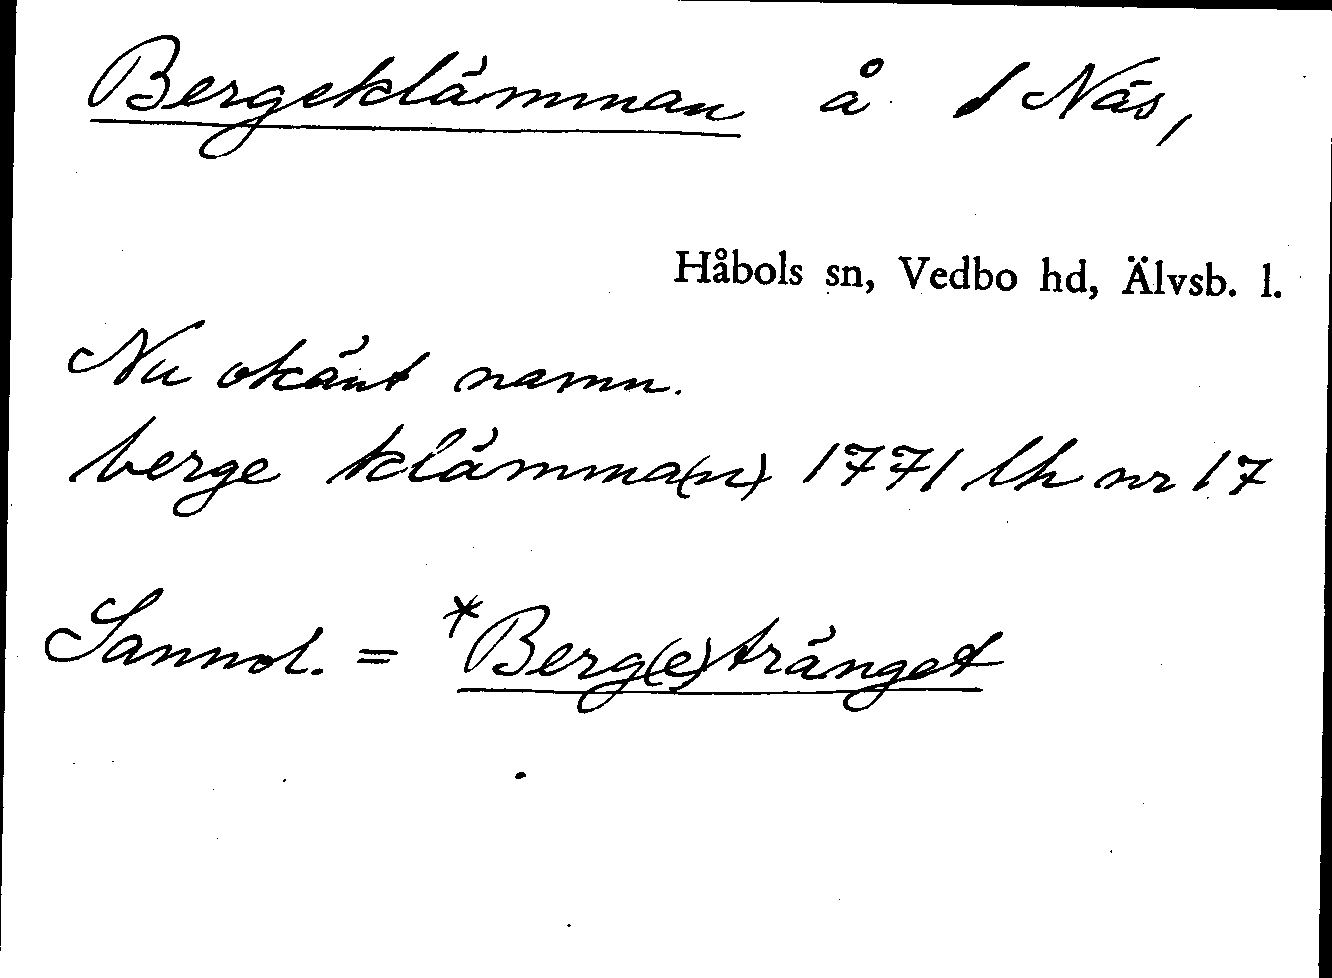 Bergeklämman å 1 Näs,
Håbols sn, Vedbo hd, Älvsb. l.
Nu okänt namn.
berge klämma(n) 1771 lh nr 17
Sannol. = *Berg(e)tränget